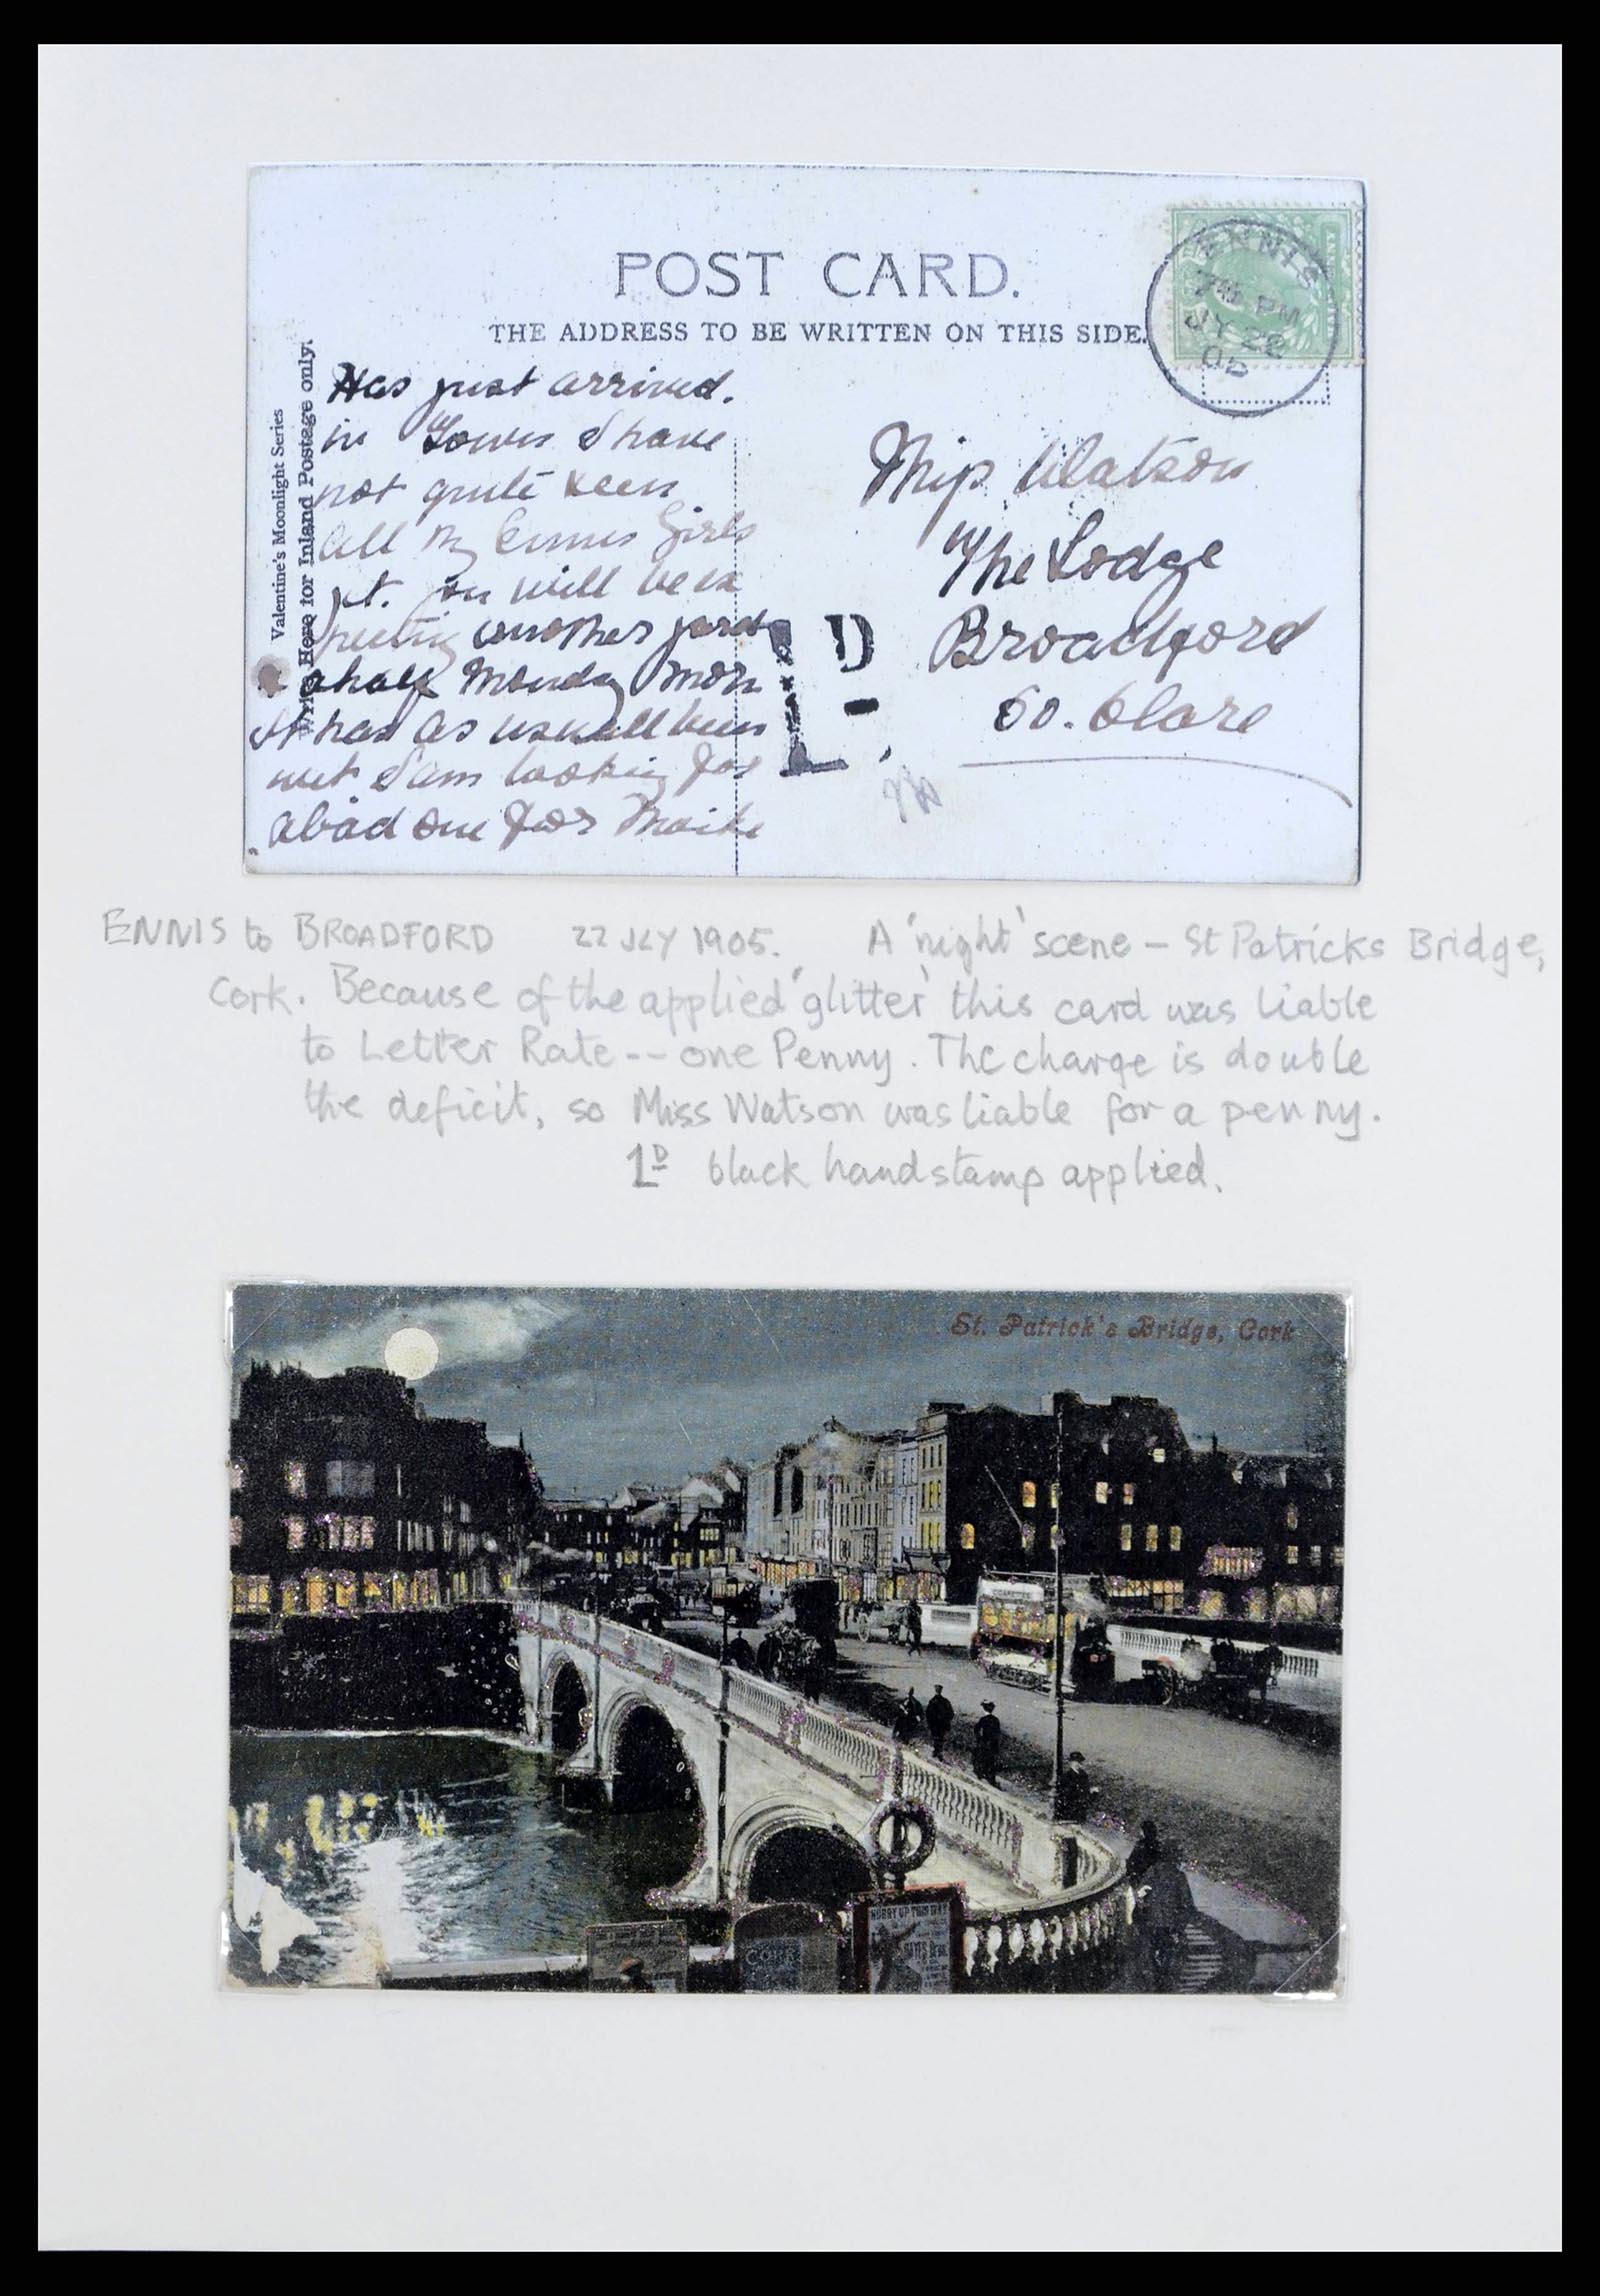 POST CARD.
THE ADDRESS TO BE WRITTEN ON THIS SIDE.
ENNIS
PM
JY 22
05
Valentine's Moonlight Series
Write Here for Inland Postage only.
Has just arrived.
in Town I have
not quite seen
all my Ennis Girls
yt. you will be ex
pecting another yard
& a half Monday Morn
It has as usuall been
wet I am looking for
a bad one for
Miss Watson
The Lodge
Broadford
Co. Clare
1D
ENNIS to BROADFORD 22 JLY 1905. A 'night' scene – St Patricks Bridge,
Cork. Because of the applied 'glitter' this card was liable
to Letter Rate -- one Penny. The charge is double
the deficit, so Miss Watson was liable for a penny.
1D black handstamp applied.
St. Patrick's Bridge, Cork
HURRY UP THIS WAY
CORK